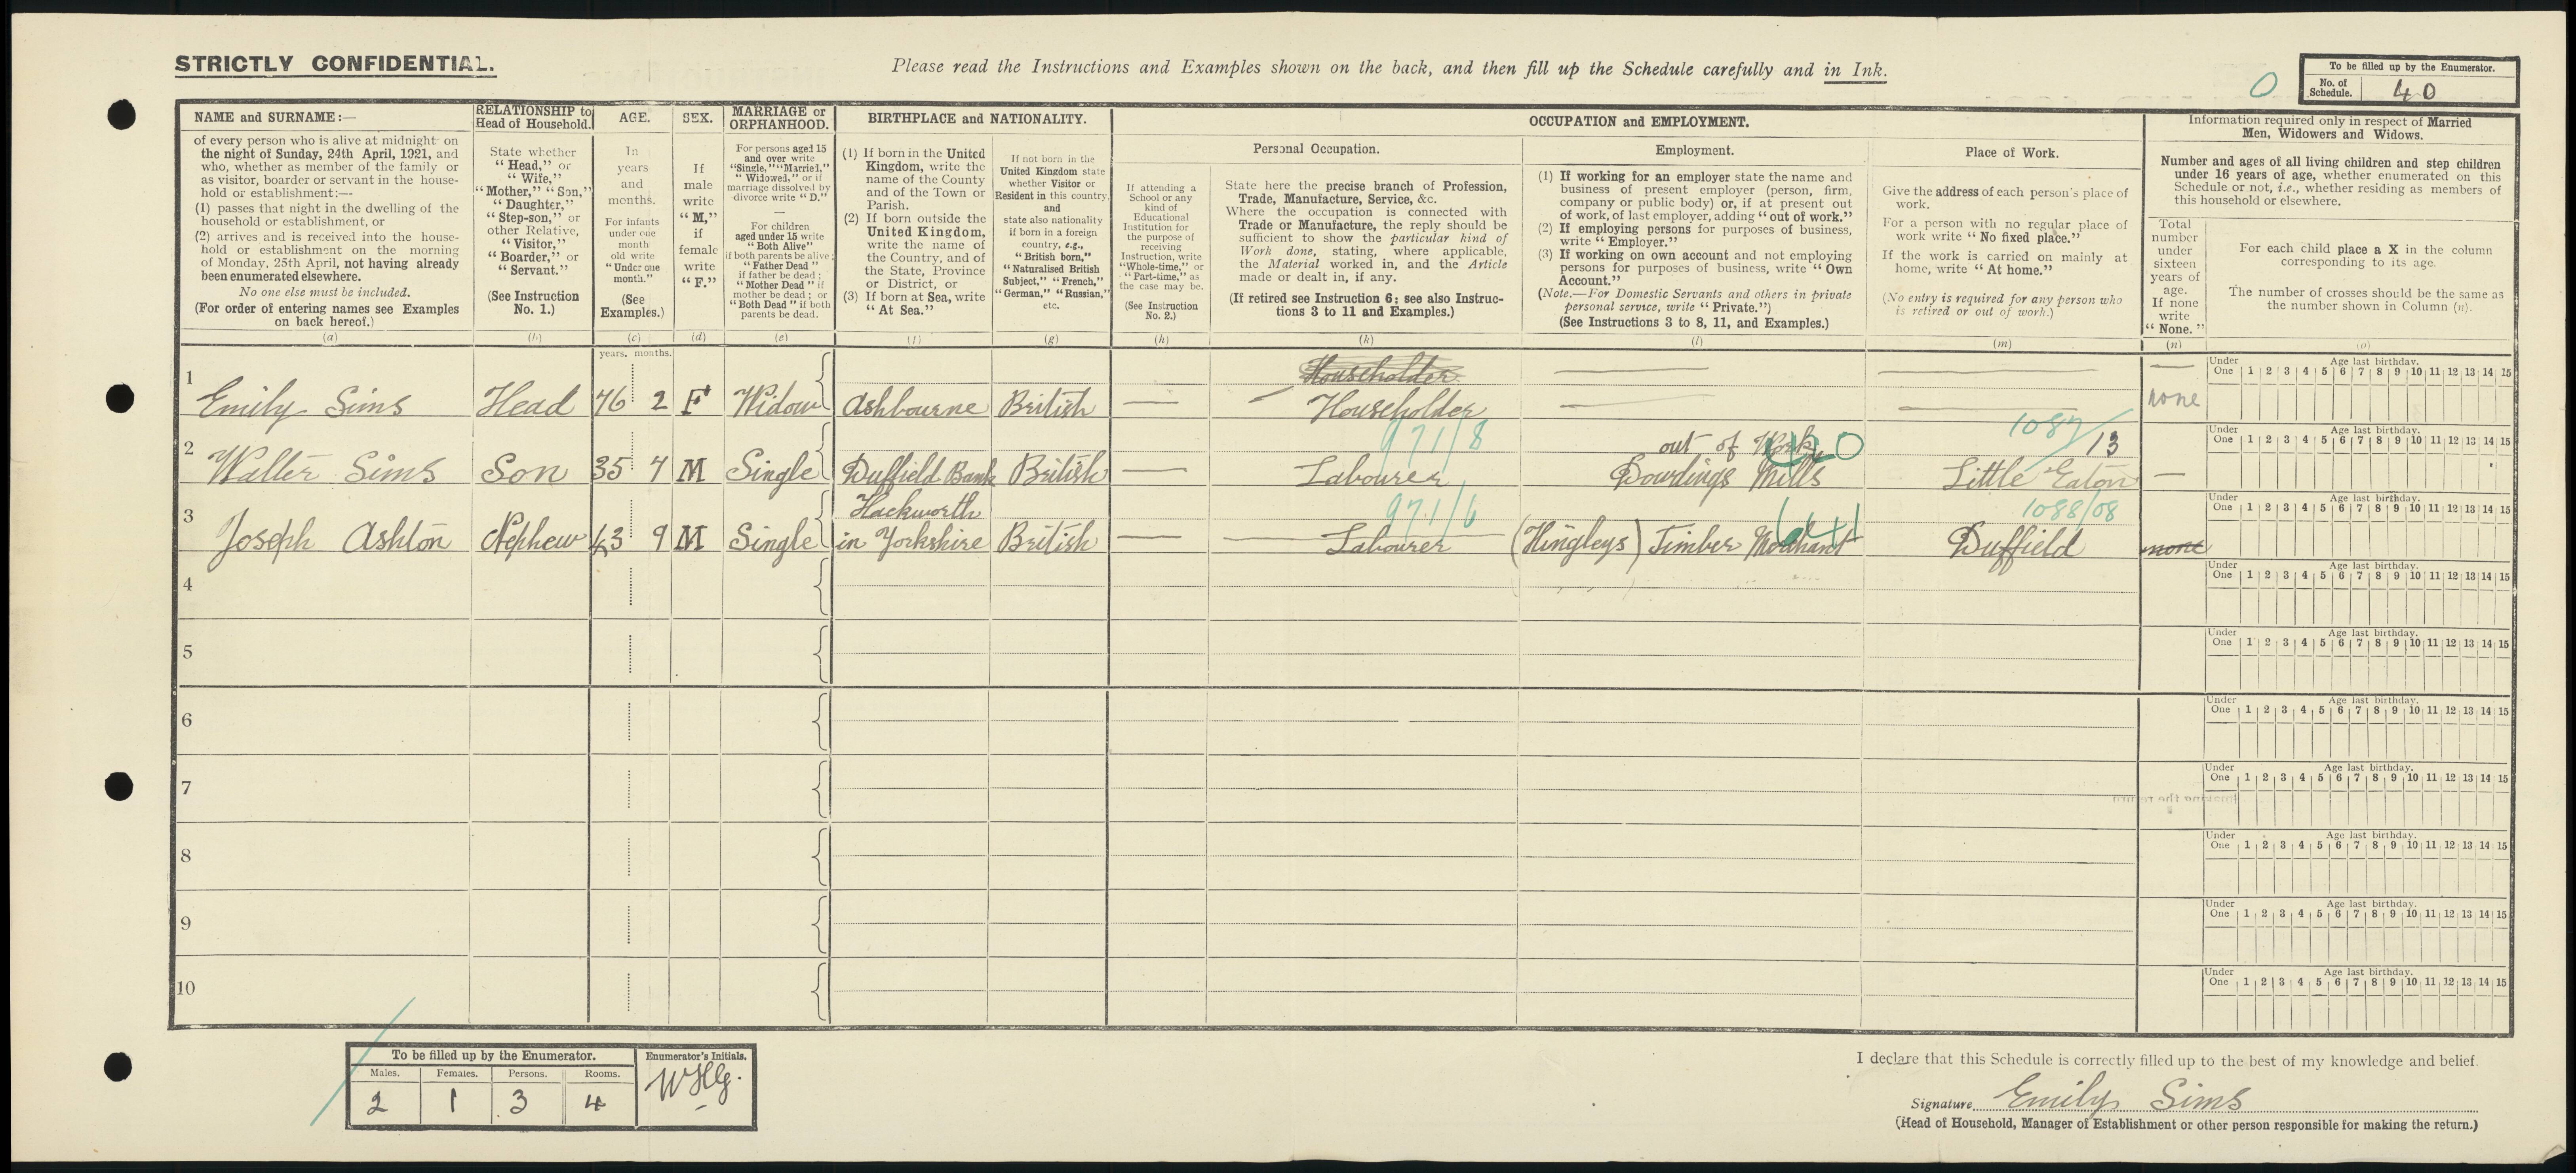 STRICTLY CONFIDENTIAL.
Please read the Instructions and Examples shown on the back, and then fill up the Schedule carefully and in Ink.
0
To be filled up by the Enumerator.
No. of Schedule. 40
NAME and SURNAME:—
of every person who is alive at midnight on
the night of Sunday, 24th April, 1921, and
who, whether as member of the family or
as visitor, boarder or servant in the house-
hold or establishment:—
(1) passes that night in the dwelling of the
household or establishment, or
(2) arrives and is received into the house-
hold or establishment on the morning
of Monday, 25th April, not having already
been enumerated elsewhere.
No one else must be included.
(For order of entering names see Examples
on back hereof.)
(a)
RELATIONSHIP to
Head of Household.
State whether
"Head," or
"Wife,"
"Mother," "Son,"
"Daughter,"
"Step-son," or
other Relative,
"Visitor,"
"Boarder," or
"Servant."
(See Instruction
No. 1.)
(b)
AGE.
In
years
and
months.
For infants
under one
month
old write
"Under one
month."
(See
Examples.)
(c)
SEX.
If
male
write
"M,"
if
female
write
"F."
(d)
MARRIAGE or
ORPHANHOOD.
For persons aged 15
and over write
"Single," "Married,"
"Widowed," or if
marriage dissolved by
divorce write "D."
—
For children
aged under 15 write
"Both Alive"
if both parents be alive;
"Father Dead"
if father be dead;
"Mother Dead" if
mother be dead; or
"Both Dead" if both
parents be dead.
(e)
BIRTHPLACE and NATIONALITY.
(1) If born in the United
Kingdom, write the
name of the County
and of the Town or
Parish.
(2) If born outside the
United Kingdom,
write the name of
the Country, and of
the State, Province
or District, or
(3) If born at Sea, write
"At Sea."
(f)
If not born in the
United Kingdom state
whether Visitor or
Resident in this country,
and
state also nationality
if born in a foreign
country, e.g.,
"British born,"
"Naturalised British
Subject," "French,"
"German," "Russian,"
etc.
(g)
OCCUPATION and EMPLOYMENT.
Personal Occupation.
If attending a
School or any
kind of
Educational
Institution for
the purpose of
receiving
Instruction, write
"Whole-time," or
"Part-time," as
the case may be.
(See Instruction
No. 2.)
(h)
State here the precise branch of Profession,
Trade, Manufacture, Service, &c.
Where the occupation is connected with
Trade or Manufacture, the reply should be
sufficient to show the particular kind of
Work done, stating, where applicable,
the Material worked in, and the Article
made or dealt in, if any.
(If retired see Instruction 6; see also Instruc-
tions 3 to 11 and Examples.)
(k)
Employment.
(1) If working for an employer state the name and
business of present employer (person, firm,
company or public body) or, if at present out
of work, of last employer, adding "out of work."
(2) If employing persons for purposes of business,
write "Employer."
(3) If working on own account and not employing
persons for purposes of business, write "Own
Account."
(Note.—For Domestic Servants and others in private
personal service, write "Private.")
(See Instructions 3 to 8, 11, and Examples.)
(l)
Place of Work.
Give the address of each person's place of
work.
For a person with no regular place of
work write "No fixed place."
If the work is carried on mainly at
home, write "At home."
(No entry is required for any person who
is retired or out of work.)
(m)
Information required only in respect of Married
Men, Widowers and Widows.
Number and ages of all living children and step children
under 16 years of age, whether enumerated on this
Schedule or not, i.e., whether residing as members of
this household or elsewhere.
Total
number
under
sixteen
years of
age.
If none
write
"None."
(n)
For each child place a X in the column
corresponding to its age.
The number of crosses should be the same as
the number shown in Column (n).
(o)
years. months.
Householder
1 Emily Sims Head 76 2 F Widow Ashbourne British — Householder — — none
Under One Age last birthday. 1 2 3 4 5 6 7 8 9 10 11 12 13 14 15
971/8 out of Work 420 1087/13
2 Walter Sims Son 35 4 M Single Duffield Bank British — Labourer Dowdings Mills Little Eaton —
Under One Age last birthday. 1 2 3 4 5 6 7 8 9 10 11 12 13 14 15
Hackworth 971/6 1088/08
3 Joseph Ashton Nephew 43 9 M Single in Yorkshire British — Labourer (Hingleys) Timber Merchant Duffield none
Under One Age last birthday. 1 2 3 4 5 6 7 8 9 10 11 12 13 14 15
4
Under One Age last birthday. 1 2 3 4 5 6 7 8 9 10 11 12 13 14 15
5
Under One Age last birthday. 1 2 3 4 5 6 7 8 9 10 11 12 13 14 15
6
Under One Age last birthday. 1 2 3 4 5 6 7 8 9 10 11 12 13 14 15
7
Under One Age last birthday. 1 2 3 4 5 6 7 8 9 10 11 12 13 14 15
8
Under One Age last birthday. 1 2 3 4 5 6 7 8 9 10 11 12 13 14 15
9
Under One Age last birthday. 1 2 3 4 5 6 7 8 9 10 11 12 13 14 15
10
Under One Age last birthday. 1 2 3 4 5 6 7 8 9 10 11 12 13 14 15
To be filled up by the Enumerator.
Males. Females. Persons. Rooms.
2 1 3 4
Enumerator's Initials.
WHG.
I declare that this Schedule is correctly filled up to the best of my knowledge and belief.
Signature Emily Sims
(Head of Household, Manager of Establishment or other person responsible for making the return.)